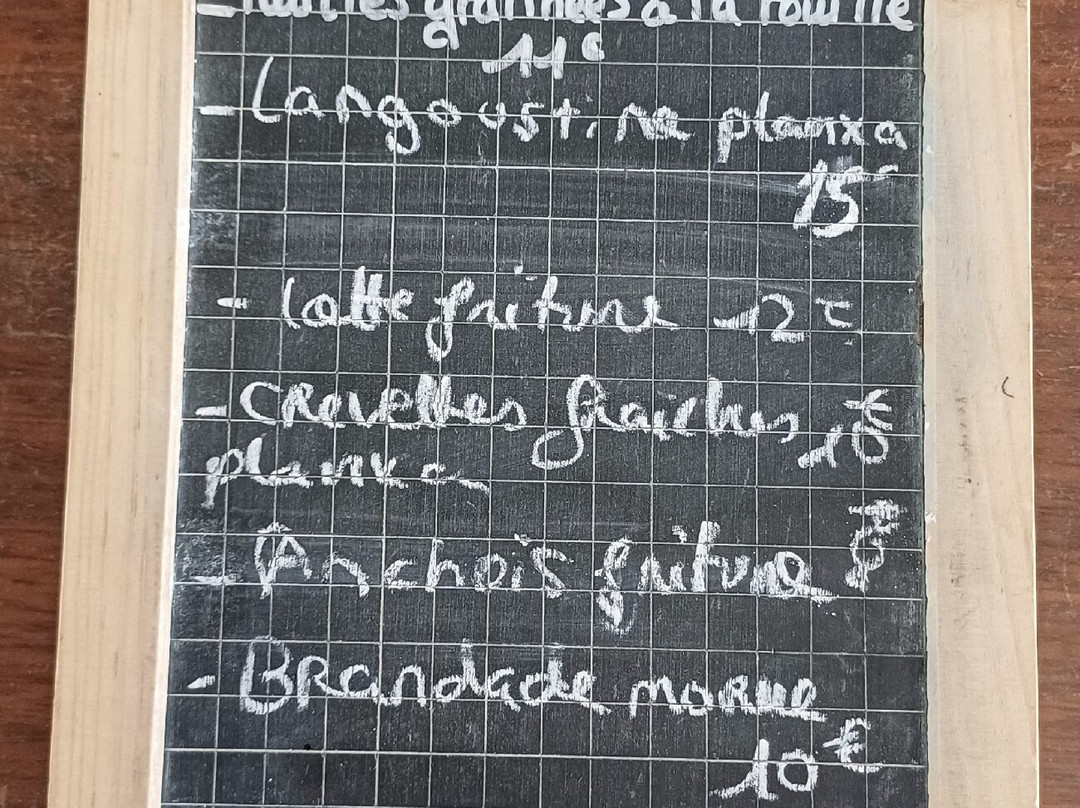 gratinées à la rouille
11€
- Langoustine planxa
15€
- lotte friture 12€
- crevettes fraîches 10€
planxa
- Anchois friture 8€
- Brandade morue
10€